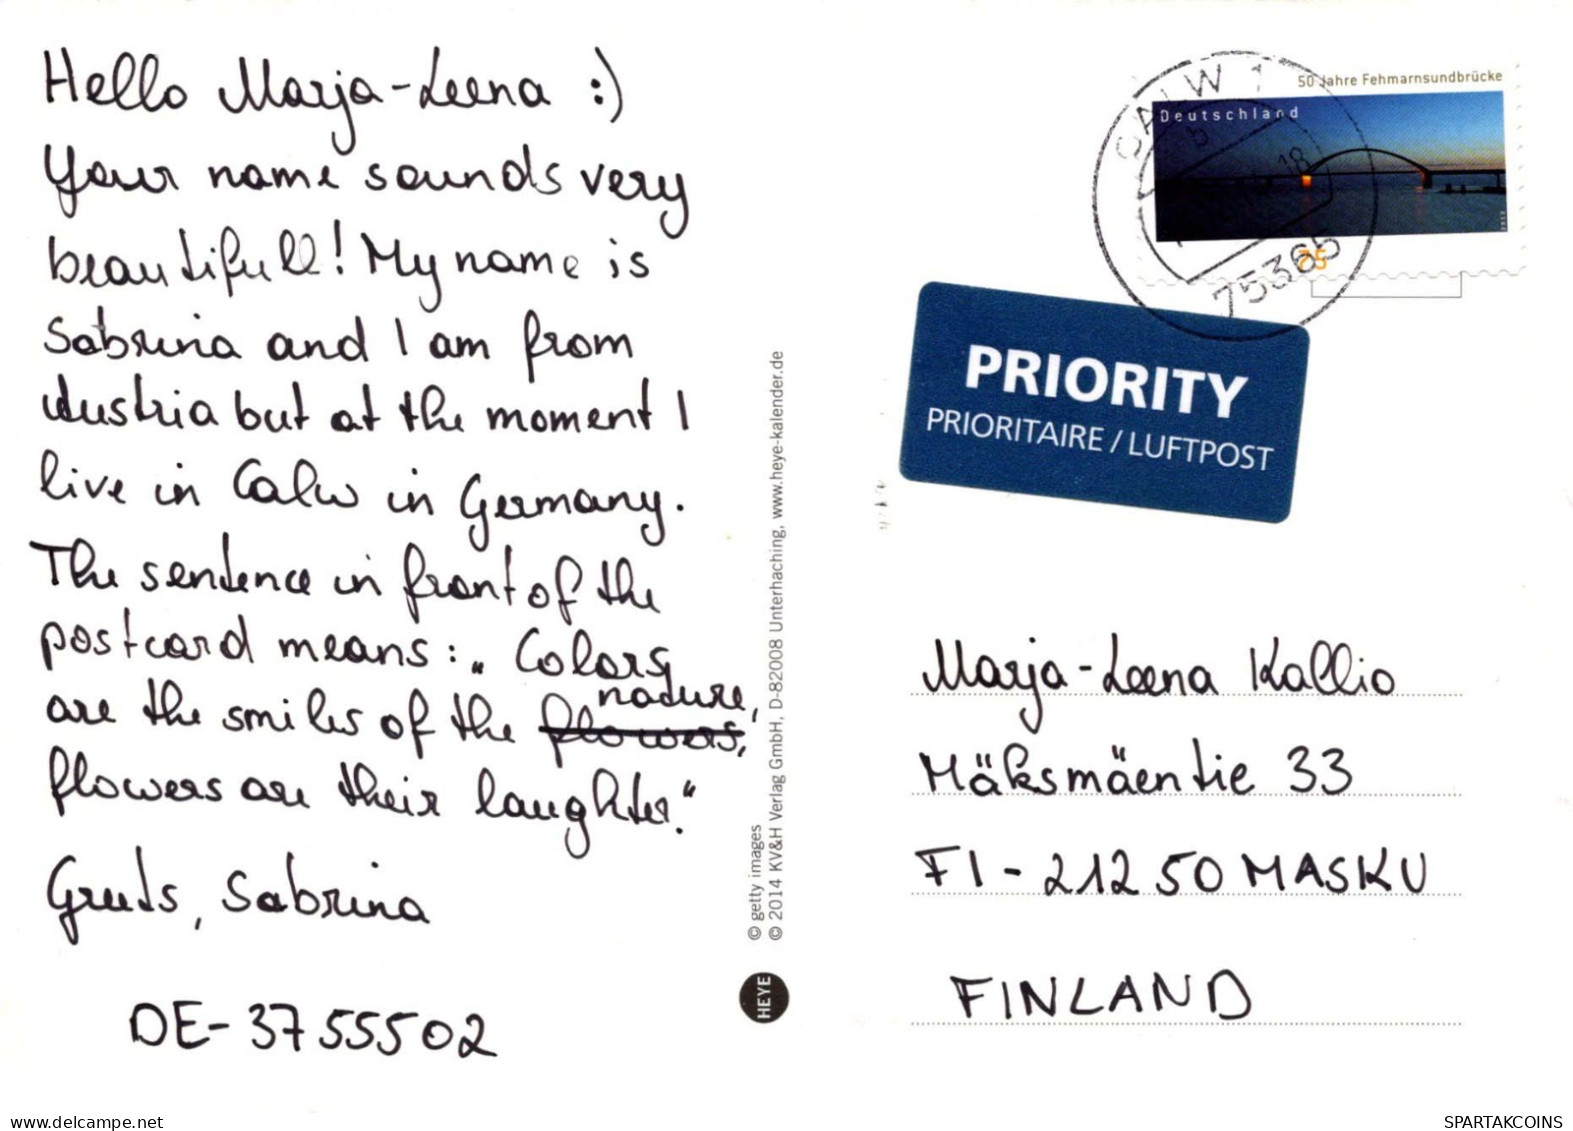 Hello Marja-Leena :)
Your name sounds very
beautifull! My name is
Sabrina and I am from
Austria but at the moment I
live in Calw in Germany.
The sentence in front of the
postcard means: „Colors
are the smiles of the flowers, nature,
flowers are their laughter."
Greets, Sabrina
DE-3755502
© getty images
© 2014 KV&H Verlag GmbH, D-82008 Unterhaching, www.heye-kalender.de
HEYE
CALW 1
75365
50 Jahre Fehmarnsundbrücke
Deutschland
75
PRIORITY
PRIORITAIRE / LUFTPOST
Marja-Leena Kallio
Mäksmäentie 33
FI-21250 MASKU
FINLAND
www.delcampe.net
SPARTAKCOINS